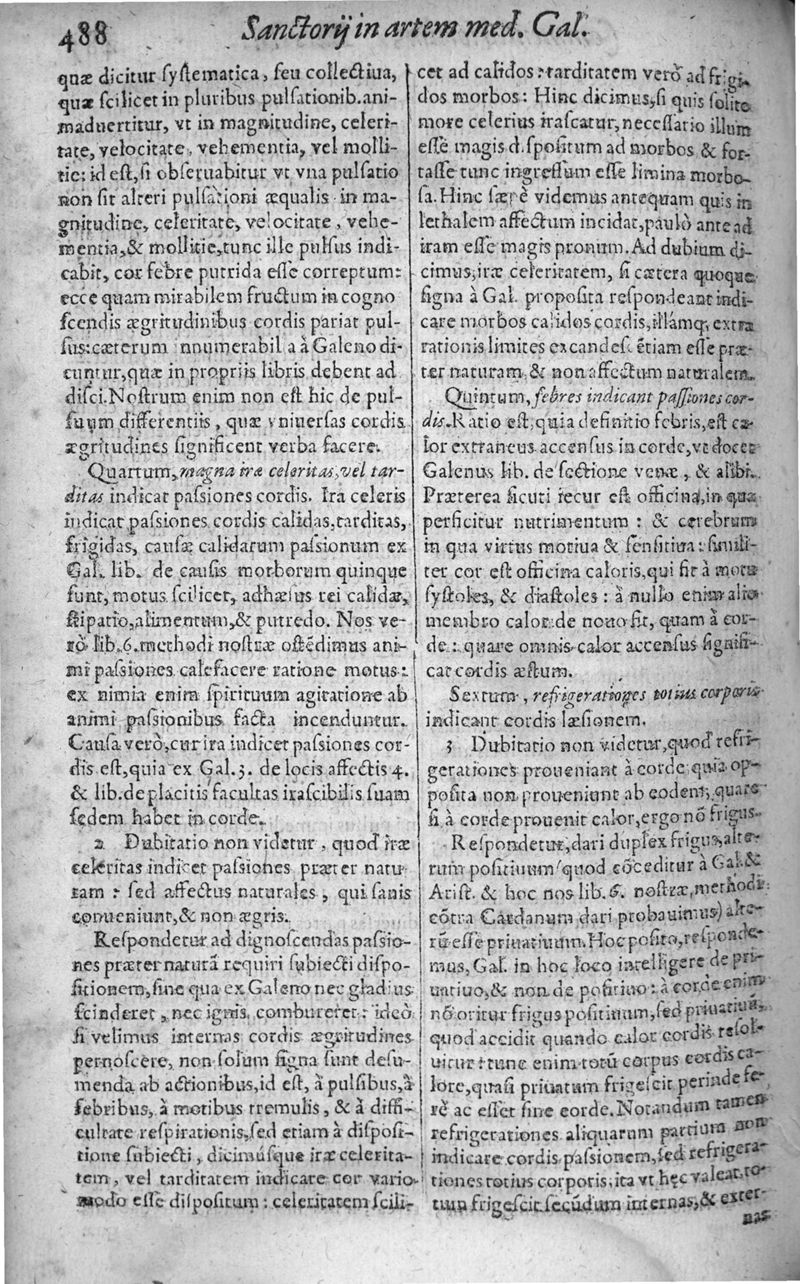 488
Sanctorij in artem med. Gal.
quæ dicitur ſyſtematica, ſeu collectiua,
quæ ſcilicet in pluribus pulſationib. ani-
maduertitur, vt in magnitudine, celeri-
tate, velocitate, vehementia, vel molli-
tie: id eſt, ſi obſeruabitur vt vna pulſatio
non ſit alteri pulſationi æqualis in ma-
gnitudine, celeritate, velocitate, vehe-
mentia, & mollitie, tunc ille pulſus indi-
cabit, cor febre putrida eſſe correptum:
ecce quam mirabilem fructum in cogno
ſcendis ægritudinibus cordis pariat pul-
ſus: cæterum nnumerabil a à Galeno di-
cuntur, quæ in propriis libris debent ad
diſci. Noſtrum enim non eſt hic de pul-
ſuum differentiis, quæ vniuerſas cordis
ægritudines ſignificent verba facere.
Quartum, magna iræ celeritas, vel tar-
ditas indicat paſsiones cordis. Ira celeris
indicat paſsiones cordis calidas, tarditas,
frigidas, cauſæ calidarum paſsionum ex
Gal. lib. de cauſis morborum quinque
ſunt, motus ſcilicet, adhæſus rei calidæ,
ſtipatio, alimentum, & putredo. Nos ve-
rò lib. 6. methodi noſtræ oſtẽdimus ani-
mi paſsiones calefacere ratione motus:
ex nimia enim ſpirituum agitatione ab
animi paſsionibus facta incenduntur.
Cauſa verò, cur ira indicet paſsiones cor-
dis eſt, quia ex Gal. 3. de locis affectis 4.
& lib. de placitis facultas iraſcibilis ſuam
ſedem habet in corde.
2 Dubitatio non videtur, quod iræ
celeritas indicet paſsiones præter natu
ram: ſed affectus naturales, qui ſanis
conueniunt, & non ægris.
Reſpondetur ad dignoſcendas paſsio-
nes præter naturã requiri ſubiecti diſpo-
ſitionem, ſine qua ex Galeno nec gladius
ſcinderet, nec ignis combureret: ideò
ſi velimus internas cordis ægritudines
pernoſcere, non ſolum ſigna ſunt deſu-
menda ab actionibus, id eſt, à pulſibus, à
febribus, à motibus tremulis, & à diffi-
cultate reſpirationis, ſed etiam à diſpoſi-
tione ſubiecti, dicimúſque iræ celerita-
tem, vel tarditatem indicare cor vario
modo eſſe diſpoſitum: celeritatem ſcili-
cet ad calidos: tarditatem verò ad frigi
dos morbos: Hinc dicimus, ſi quis ſolito
more celerius iraſcatur, neceſſario illum
eſſe magis d.ſpoſitum ad morbos & for-
taſſe tunc ingreſſum eſſe limina morbo-
ſa. Hinc ſæpè videmus antequam quis in
lethalem affectum incidat, paulò ante ad
iram eſſe magis pronum. Ad dubium di-
cimus, iræ celeritatem, ſi cætera quoque
ſigna à Gal. propoſita reſpondeant indi-
care morbos calidos cordis, illámq; extra
rationis limites excandeſ. ẽtiam eſſe præ-
ter naturam, & non affectum naturalem.
Quintum, febres indicant paſſiones cor-
dis. Ratio eſt, quia definitio febris, eſt ca-
lor extraneus accenſus in corde, vt docet
Galenus lib. de ſectione venæ, & alibi.
Præterea ſicuti iecur eſt officina, in qua
perficitur nutrimentum: & cerebrum
in qua virtus motiua & ſenſitiua: ſimili-
ter cor eſt officina caloris, qui fit à motu
ſyſtoles, & diaſtoles: à nullo enim alio
membro calor de nouo fit, quam à cor-
de: quare omnis calor accenſus ſignifi-
cat cordis æſtum.
Sextum, refrigerationes totius corporis
indicant cordis læſionem.
3 Dubitatio non videtur, quod refri-
gerationes proueniant à corde quia op-
poſita non proueniunt ab eodem, quare
ſi à corde prouenit calor, ergo nõ frigus.
Reſpondetur, dari duplex frigus, alte-
rum poſitiuum (quod cõceditur à Gal. &
Ariſt. & hoc nos lib. 6. noſtræ methodi
cõtra Cardanum dari probauimus) alte-
rũ eſſe priuatiuum. Hoc poſito, reſponde-
mus, Gal. in hoc loco intelligere de pri-
uatiuo, & non de poſitiuo: à corde enim
nõ oritur frigus poſitiuum, ſed priuatiuũ,
quod accidit quando calor cordis reſol-
uitur: tunc enim totũ corpus cordis ca-
lore, quaſi priuatum frigeſcit perinde fe-
rè ac eſſet ſine corde. Notandum tamen
refrigerationes aliquarum partium non
indicare cordis paſsionem, ſed refrigera-
tiones totius corporis, ita vt hęc valeat, to-
tum frigeſcit ſecũdum internas, & exter-
nas